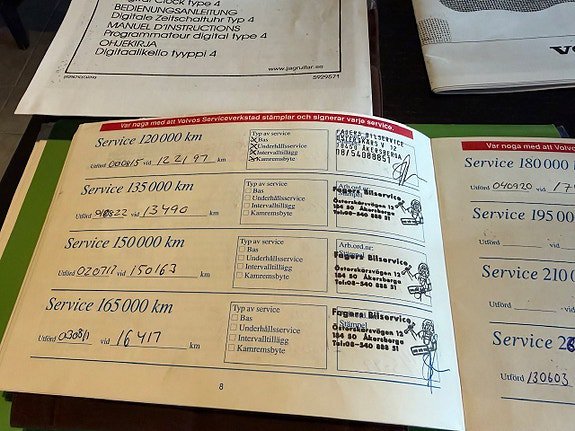 Digital Clock type 4
BEDIENUNGSANLEITUNG
Digitale Zeitschaltuhr Typ 4
MANUEL D'INSTRUCTIONS
Programmateur digital type 4
OHJEKIRJA
Digitaalikello tyyppi 4
www.jagrullar.es
5929571
Var noga med att Volvos Serviceverkstad stämplar och signerar varje service.
Service 120 000 km
Utförd 000815 vid 122197 km
Typ av service
Bas
Underhållsservice
Intervalltillägg
Kamremsbyte
FAGERS BILSERVICE
ÖSTERSKÄRS V. 12
18450 ÅKERSBERSA
08/54088851
Service 135 000 km
Utförd vid 13490 km
Typ av service
Bas
Underhållsservice
Intervalltillägg
Kamremsbyte
Arb.ord.nr:
Stämpel
Fagers Bilservice
Österskärsvägen 12
184 50 Åkersberga
Tel.08-540 888 51
Service 150 000 km
Utförd 020717 vid 150163 km
Typ av service
Bas
Underhållsservice
Intervalltillägg
Kamremsbyte
Arb.ord.nr:
Fagers Bilservice
Österskärsvägen 12
184 50 Åkersberga
Tel.08-540 888 51
Service 165 000 km
Utförd 030811 vid 16417 km
Typ av service
Bas
Underhållsservice
Intervalltillägg
Kamremsbyte
Fagers Bilservice
Stämpel
Österskärsvägen 12
184 50 Åkersberga
Tel.08-540 888 51
8
Var noga med att Volvos
Service 180 000
Utförd 040920 vid
Service 195 00
Utförd
Service 210 0
Utförd
Service
Utförd 130603